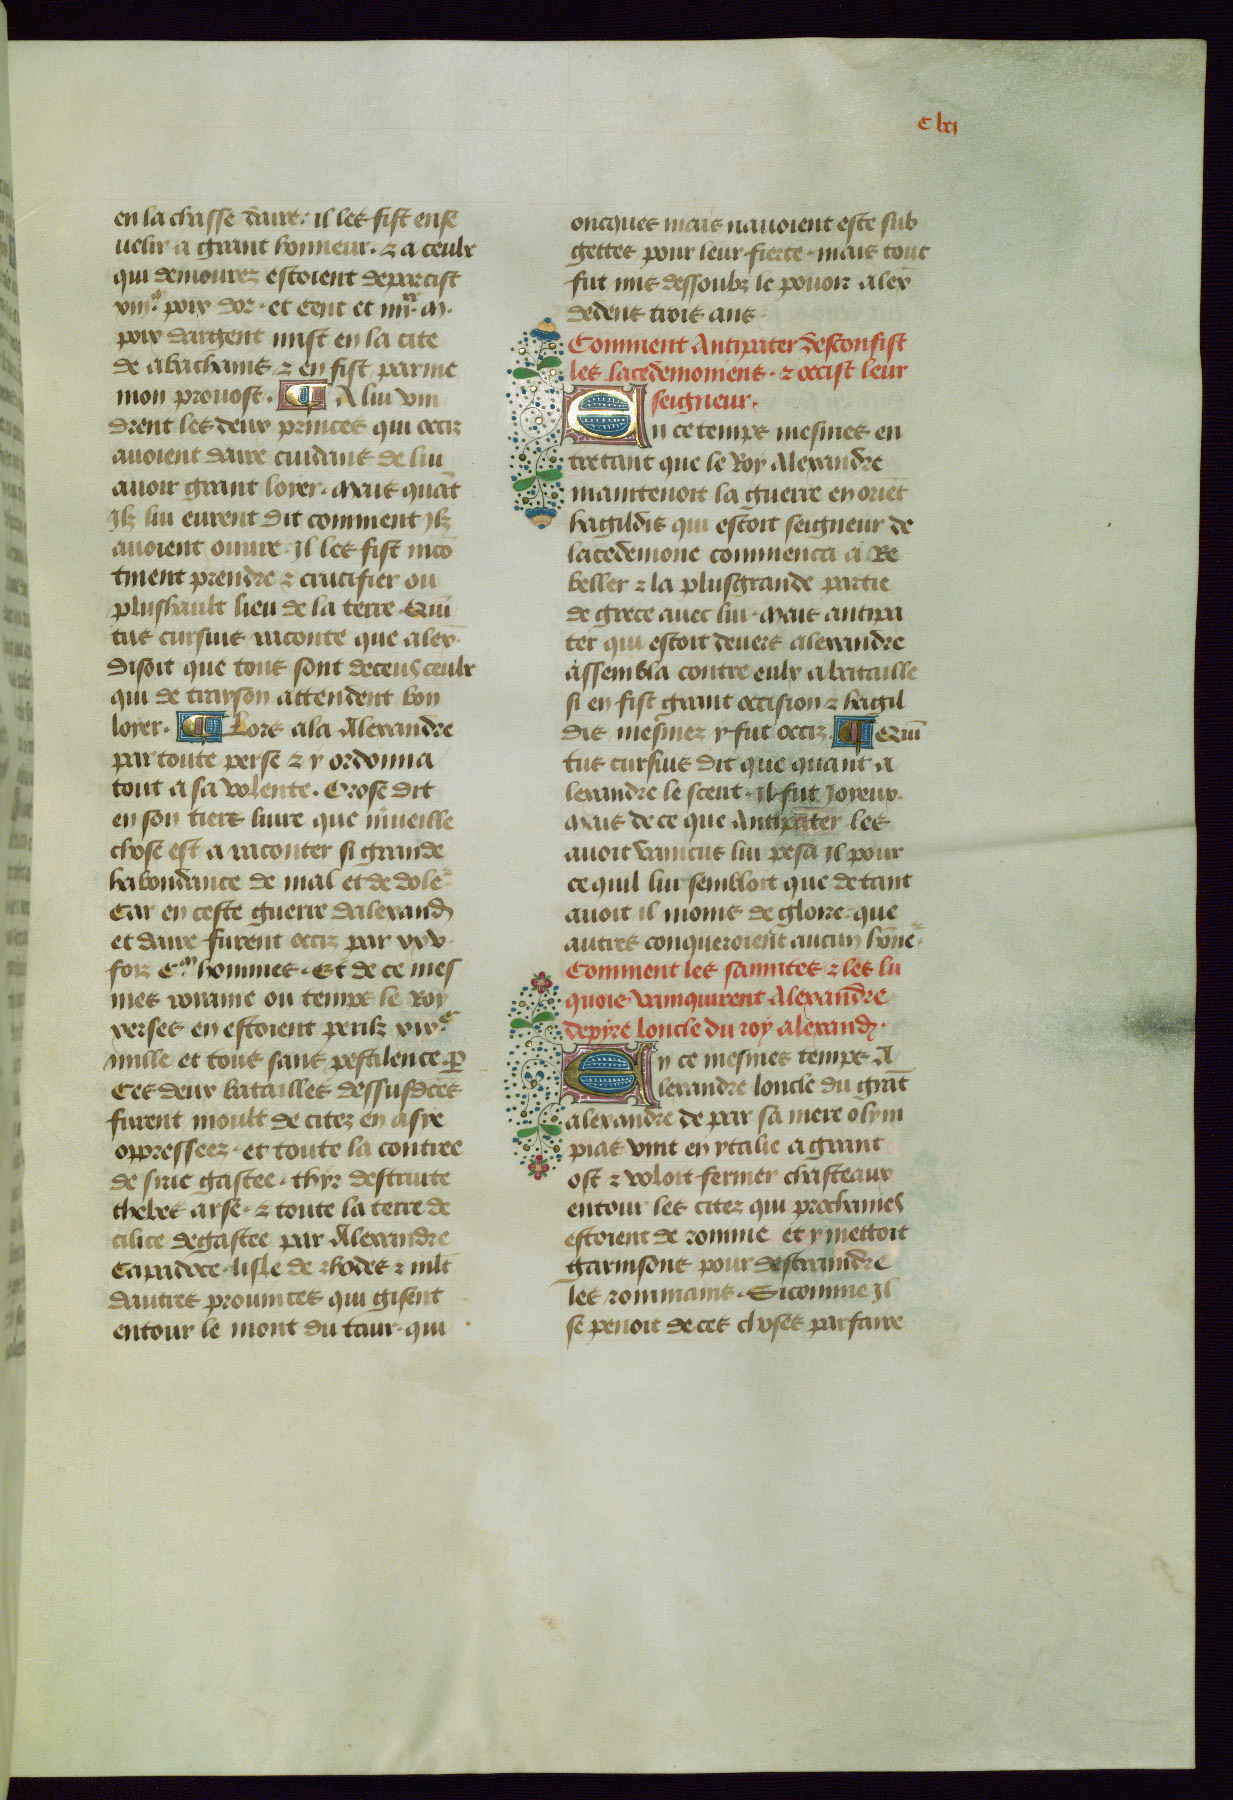 C lxj
en la chasse daire: il les fist ense
uelir a grant honneur. ⁊ a ceulx
qui demourez estoient departist
viijᵐ poix dor. et Cent et iiijˣˣ. M.
poix dargent mist en la cite
de abathanis ⁊ en fist parme
nion prouost. ¶ A lui vin
drent les deux princes qui occiz
auoient daire cuidans de lui
auoir grant loyer. Mais quāt
Jlz lui eurent dit comment Jlz
auoient ouure. Jl les fist incō
tinent prendre ⁊ crucifier ou
plushault lieu de la terre. Quī
tus cursius raconte que alex̄.
disoit que tous sont deceus ceulx
qui de trayson attendent bon
loyer. ¶ Lors ala Alexandre
par toute perse ⁊ y ordonna
tout a sa volente. Orose dit
en son tiers liure que m̄ueille
chose est a raconter si grande
habondance de mal et de dole᷑
Car en ceste guerre dalexand̄
et daire furent occiz par xxv.
foiz C.ᵐ hommes. Et de ce mes
mes royaume ou temps le Roy
xerses en estoient periz xixᶜ
mille et tous sans pestilence. ꝑ
Ces deux batailles dessusd̄ctes
furent moult de citez en asye
oppressees. et toute la contree
de sirie gastee. thyr destruite
thebes arse. ⁊ toute la terre de
cilice degastee par Alexandre
Capadoce. lisle de rhodes ⁊ mlt̄
dautres prouinces qui gisent
entour le mont du taur. qui
oncques mais nauoient este sub
gettes pour leur fierte. mais tout
fut mis dessoubz le pouoir alex̄
dedens trois ans
Comment Antipater desconfist
les lacedemoniens. ⁊ occist leur
seigneur.
En ce temps mesmes en
tretant que le Roy Alexandre
maintenoit la guerre en oriēt
hagildis qui estoit seigneur de
lacedemone commenca a Re
beller ⁊ la plusgrande partie
de grece auec lui. Mais antipa
ter qui estoit deuers alexandre
assembla contre eulx a bataille
si en fist grant occision ⁊ hagil
dis mesmez y fut occiz. ¶ Quī
tus cursius dit que quant a
lexandre le sceut. Jl fut Joyeux.
Mais de ce que Antipater les
auoit vaincus lui pesa Jl pour
ce quil lui sembloit que de tant
auoit il moins de gloire. que
autres conqueroient aucun hōne᷑
Comment les samites ⁊ les lu
quois vainquirent Alexandre
depyre loncle du roy alexand̄.
En ce mesmes temps A
lexandre loncle du grāt
alexandre de par sa mere olym
pias vint en ytalie a grant
ost ⁊ voloit fermer chasteaux
entour les citez qui prochaines
estoient de romme et y mettoit
garnisons pour destraindre
les rommains. Sicomme Jl
se penoit de ces choses parfaire